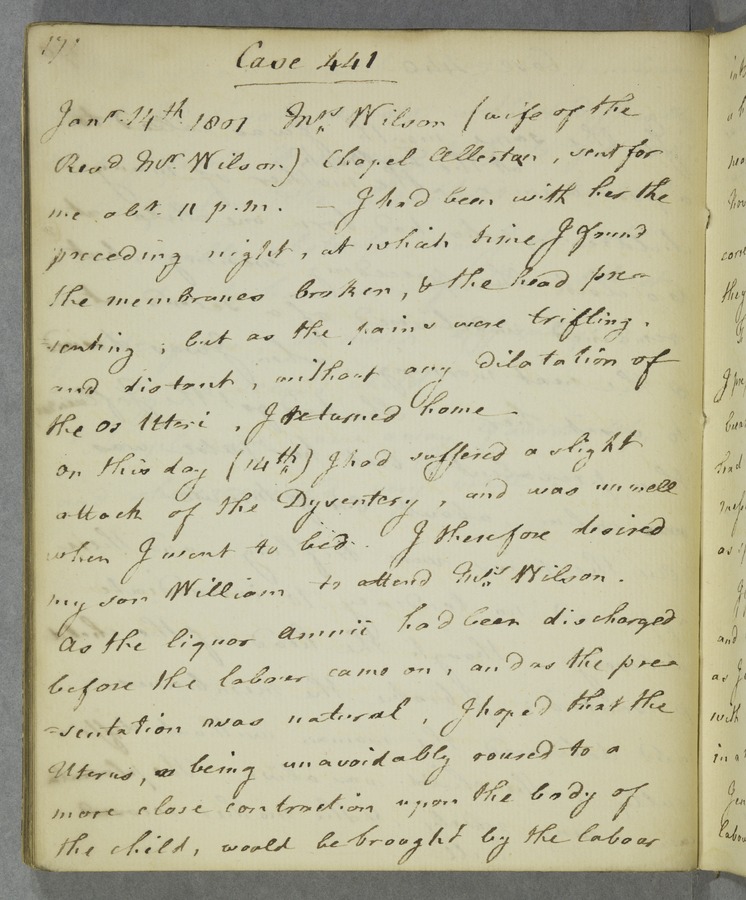 171
Case 441
Janr. 14th. 1801 Mrs. Wilson (wife of the
Revd. Mr. Wilson) Chapel Allerton, sent for
me abt. 11 p.m. — I had been with her the
preceding night, at which time I found
the membranes broken, & the head pre-
=senting; but as the pains were trifling,
and distant, without any dilatation of
the os Uteri, I returned home
on this day (14th.) I had suffered a slight
attack of the Dysentery, and was unwell
when I went to bed. I therefore desired
my son William to attend Mrs. Wilson.
As the liquor amnii had been discharged
before the labour came on, and as the pre-
=sentation was natural, I hoped that the
Uterus, as being unavoidably roused to a
more close contraction upon the body of
the child, would be brought by the labour